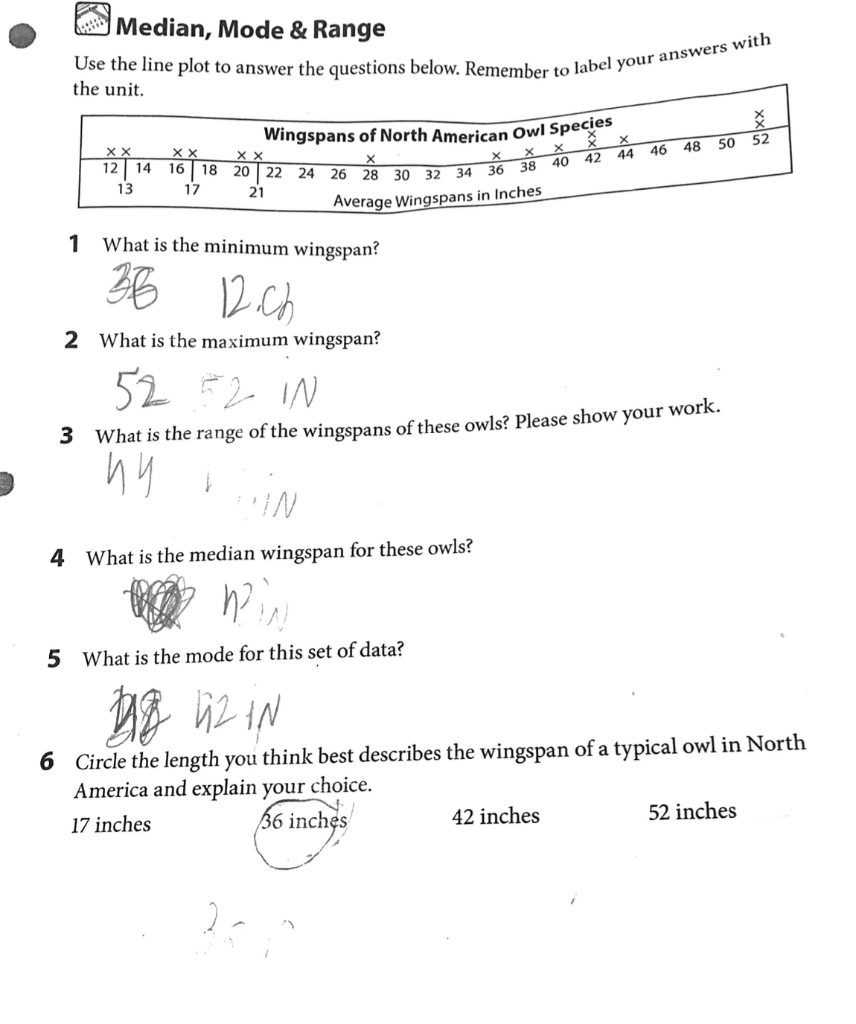 Median, Mode & Range
Use the line plot to answer the questions below. Remember to label your answers with
the unit.
Wingspans of North American Owl Species
x x x x x x x x x x x x x x x
12 14 16 18 20 22 24 26 28 30 32 34 36 38 40 42 44 46 48 50 52
13 17 21
Average Wingspans in Inches
1 What is the minimum wingspan?
36 12
2 What is the maximum wingspan?
52 52 IN
3 What is the range of the wingspans of these owls? Please show your work.
IN
4 What is the median wingspan for these owls?
IN
5 What is the mode for this set of data?
42 IN
6 Circle the length you think best describes the wingspan of a typical owl in North
America and explain your choice.
17 inches 36 inches 42 inches 52 inches